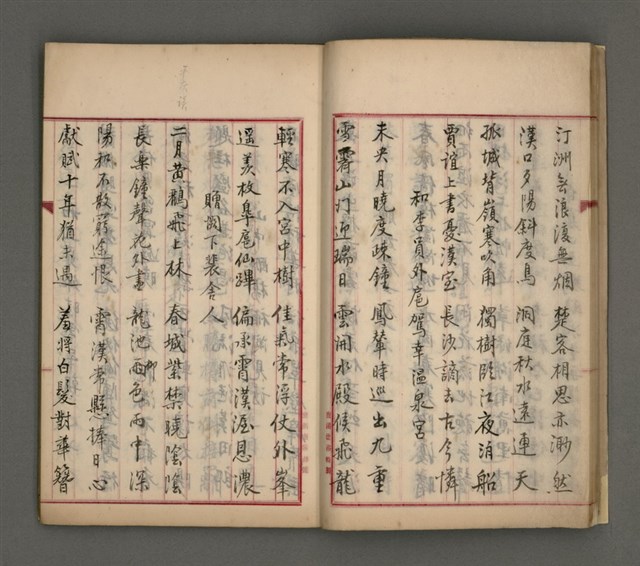 汀洲無浪復無烟 楚客相思亦渺然
漢口夕陽斜度鳥 洞庭秋水遠連天
孤城背嶺寒吹角 獨樹臨江夜泊船
賈誼上書憂漢室 長沙謫去古今憐
和李員外扈駕幸温泉宮
未央月曉度疎鐘 鳳輦時巡出九重
雪霽山門迎瑞日 雲開水殿候飛龍
輕寒不入宮中樹 佳氣常浮仗外峯
遥羡枚皋扈仙蹕 偏承霄漢渥恩濃
贈闕下裴舍人
二月黄鸝飛上林 春城紫禁曉陰陰
長樂鐘聲花外盡 龍池柳色雨中深
陽和不散窮途恨 霄漢常懸捧日心
獻賦十年猶未遇 羞將白髮對華簪